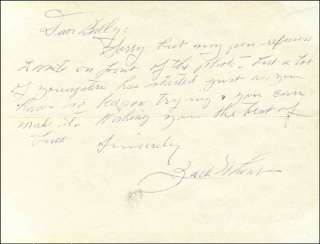 Dear Billy:
Sorry but my pen refuses
to write on front of the photo - But a lot
of youngsters has started just as you
have so keep on trying & you can
make it. Wishing you the best of
luck Sincerely
Zack Wheat